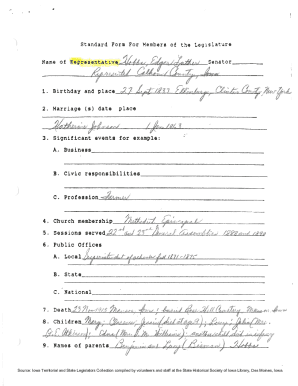 Standard Form For Members of the Legislature
Name of Representative Hobbs, Edgar Luther Senator
Represented Calhoun County, Iowa
1. Birthday and place 27 Sept 1837 Ellenburg, Clinton County, New York
2. Marriage (s) date place
Katherine Johnson 1 Jan 1863
3. Significant events for example:
A. Business
B. Civic responsibilities
C. Profession Farmer
4. Church membership Methodist Episcopal
5. Sessions served 22nd and 23rd General Assemblies 1888 and 1890
6. Public Offices
A. Local Superintendent of schools 1871-1875
B. State
C. National
7. Death 23 Nov 1919 Manson Iowa; buried Rose Hill Cemetery Manson Iowa
8. Children Mary; Clarence; (died at age 4);
9. Names of parents Benjamin and Hobbs
Source: Iowa Territorial and State Legislators Collection compiled by volunteers and staff at the State Historical Society of Iowa Library, Des Moines, Iowa.